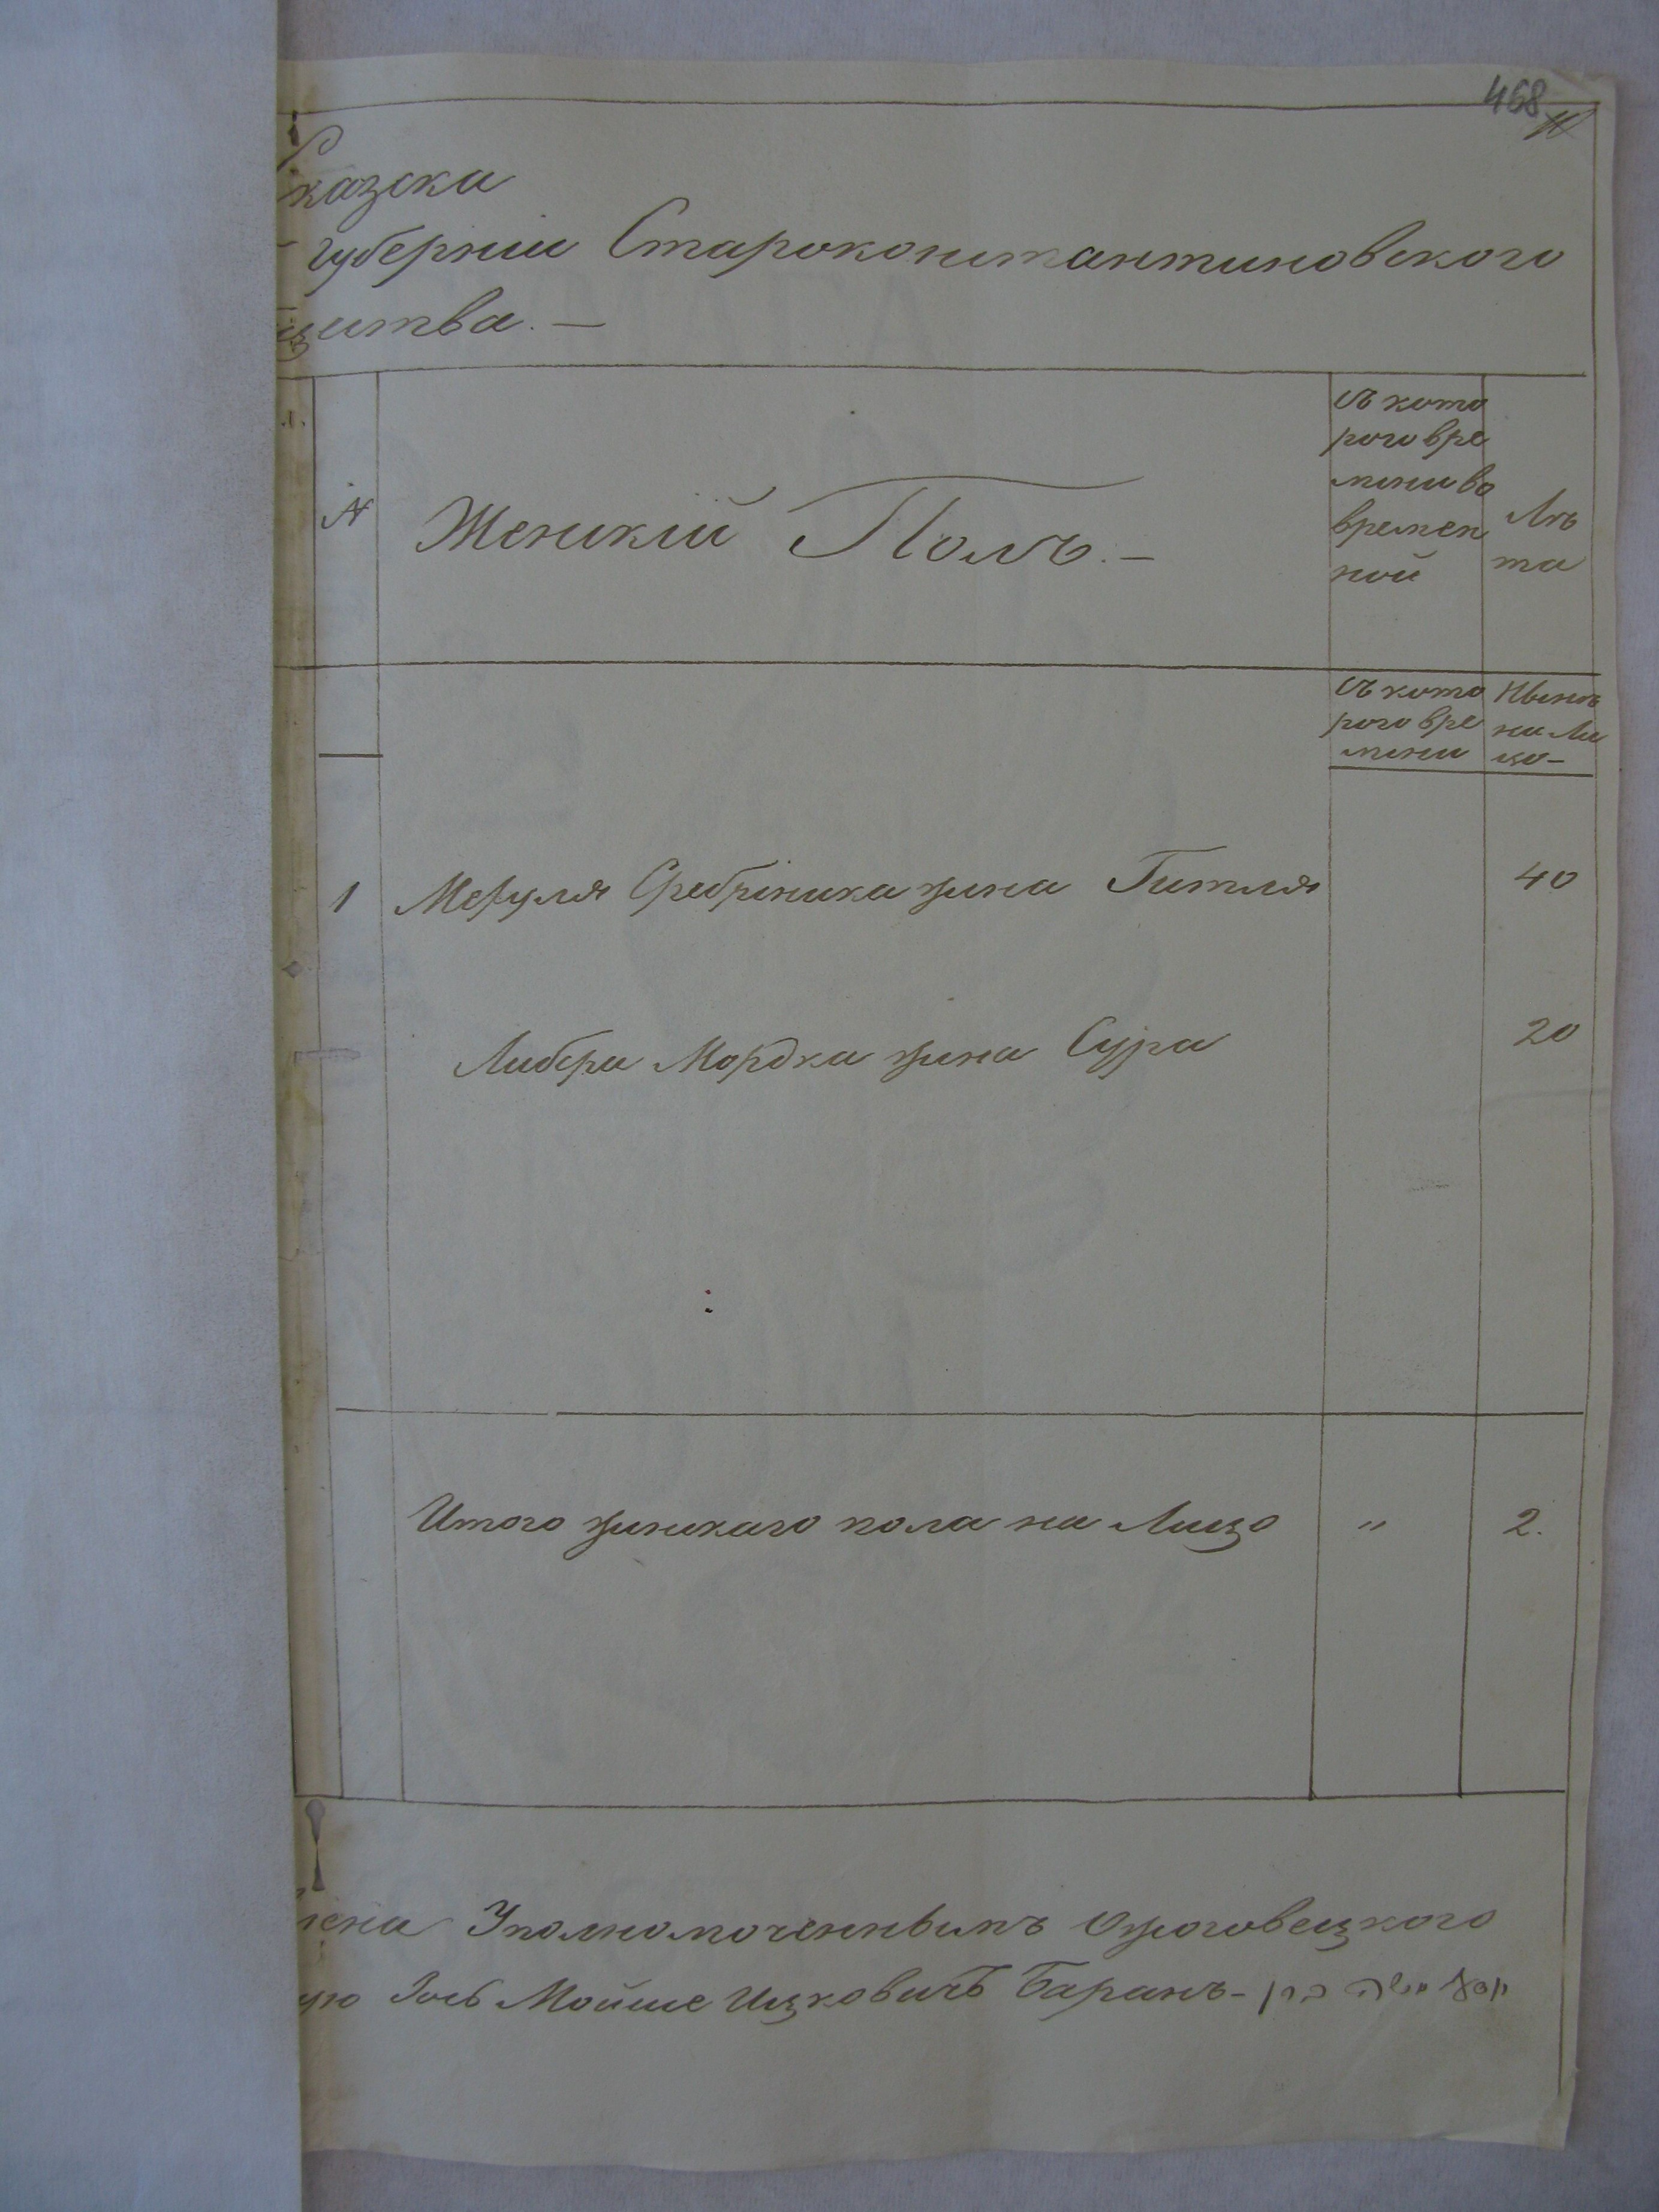 468
казска
губернии Староконстантиновского
щества. —
№
Женскій Полъ. —
съ кото
рого вре
мени во
времен
ной
Лѣ
та
съ кото
рого вре
мени
Нынѣ
на Ли
цо —
1 Мехуля Сребрника жена Гитля 40
Либера Мордка жена Сура 20
Итого женскаго пола на Лицо " 2.
лена Уполномоченнымъ Ожоговецкого
Іось Мойше Ицковичъ Баранъ -